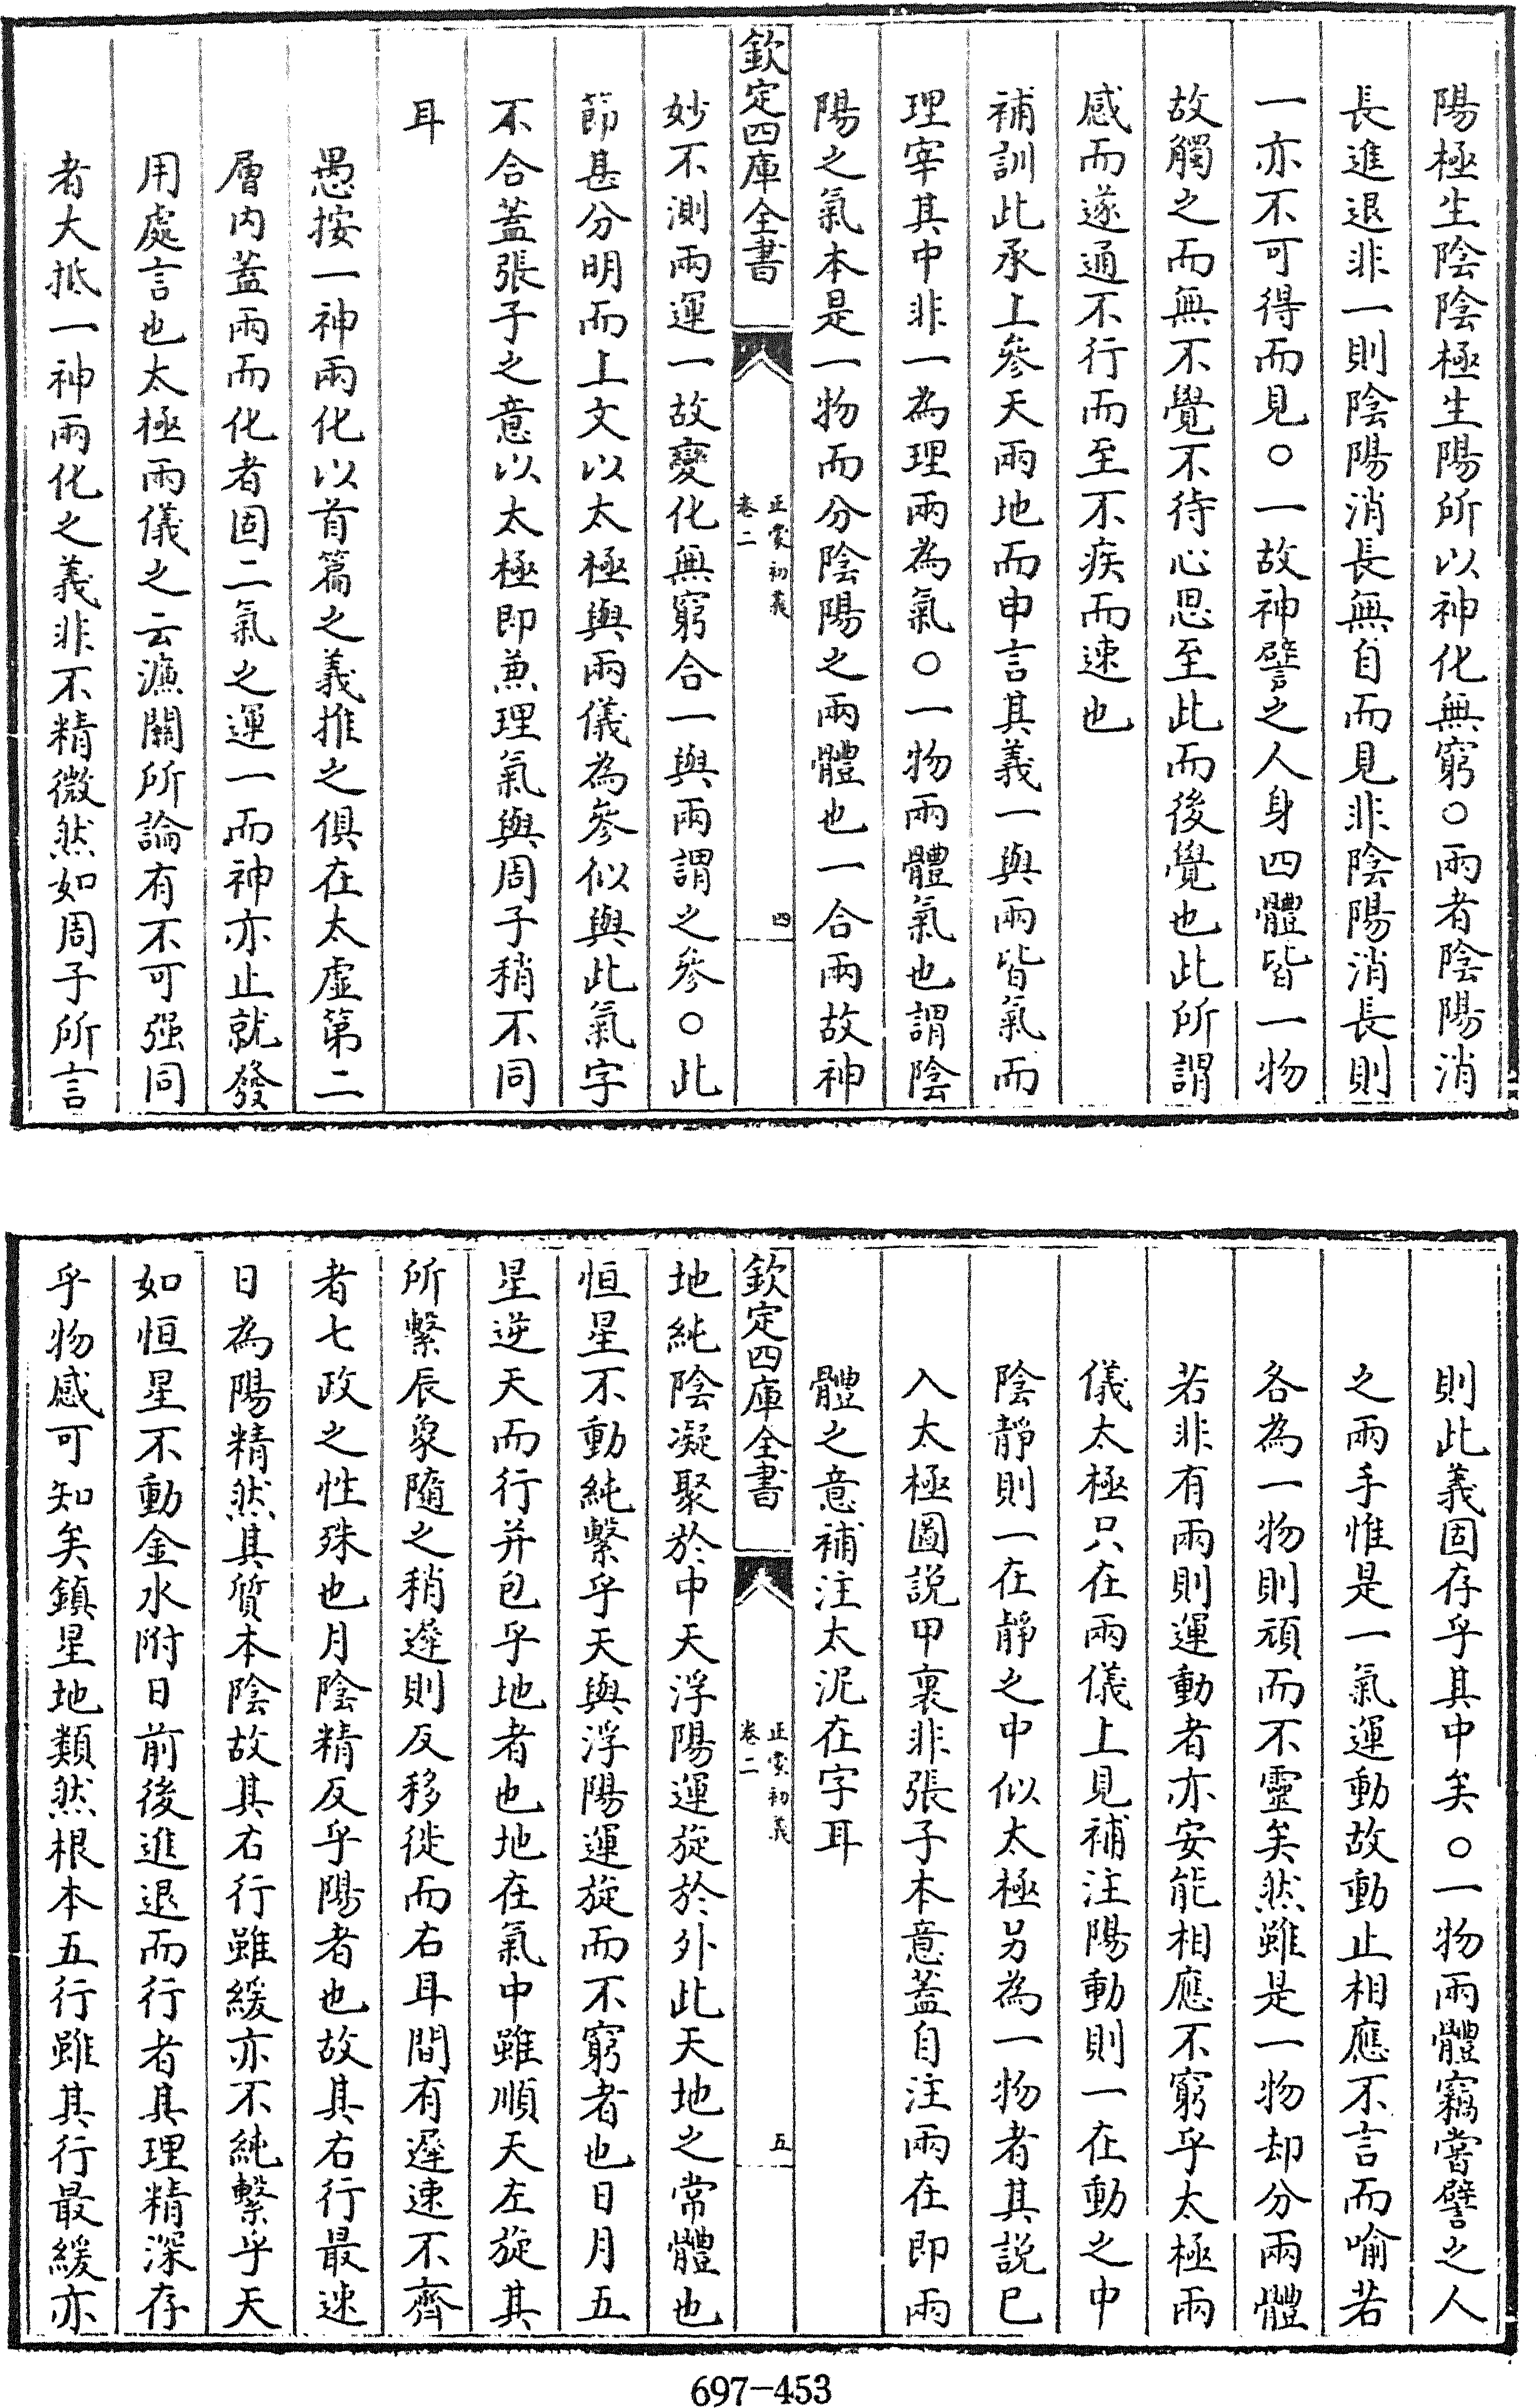 陽極生陰陰極生陽所以神化無窮○兩者陰陽消
長進退非一則陰陽消長無自而見非陰陽消長則
一亦不可得而見○一故神譬之人身四體皆一物
故觸之而無不覺不待心思至此而後覺也此所謂
感而遂通不行而至不疾而速也
補訓此承上參天兩地而申言其義一與兩皆氣而
理宰其中非一為理兩為氣○一物兩體氣也謂陰
陽之氣本是一物而分陰陽之兩體也一合兩故神
欽定四庫全書
正蒙初義
卷二
四
妙不測兩運一故變化無窮合一與兩謂之參○此
節甚分明而上文以太極與兩儀為參似與此氣字
不合蓋張子之意以太極即兼理氣與周子稍不同
耳
愚按一神兩化以首篇之義推之俱在太虛第二
層內蓋兩而化者固二氣之運一而神亦止就發
用處言也太極兩儀之云濂關所論有不可强同
者大抵一神兩化之義非不精微然如周子所言
則此義固存乎其中矣○一物兩體竊嘗譬之人
之兩手惟是一氣運動故動止相應不言而喻若
各為一物則頑而不靈矣然雖是一物却分兩體
若非有兩則運動者亦安能相應不窮乎太極兩
儀太極只在兩儀上見補注陽動則一在動之中
陰靜則一在靜之中似太極另為一物者其說已
入太極圖說甲裏非張子本意蓋自注兩在即兩
體之意補注太泥在字耳
欽定四庫全書
正蒙初義
卷二
五
地純陰凝聚於中天浮陽運旋於外此天地之常體也
恒星不動純繫乎天與浮陽運旋而不窮者也日月五
星逆天而行并包乎地者也地在氣中雖順天左旋其
所繫辰象隨之稍遲則反移徙而右耳間有遲速不齊
者七政之性殊也月陰精反乎陽者也故其右行最速
日為陽精然其質本陰故其右行雖緩亦不純繫乎天
如恒星不動金水附日前後進退而行者其理精深存
乎物感可知矣鎮星地類然根本五行雖其行最緩亦
697-453